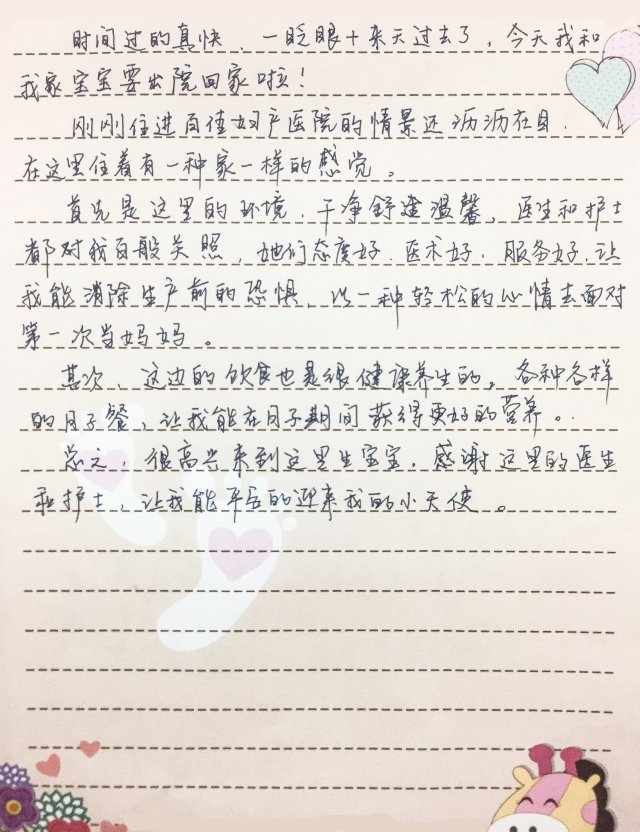 时间过的真快、一眨眼十来天过去了，今天我和
我家宝宝要出院回家啦！
刚刚住进百佳妇产医院的情景还沥沥在目，
在这里住着有一种家一样的感觉。
首先是这里的环境，干净舒适温馨，医生和护士
都对我百般关照，她们态度好，医术好，服务好，让
我能消除生产前的恐惧，以一种轻松的心情去面对
第一次当妈妈。
其次、这边的饮食也是很健康养生的，各种各样
的月子餐，让我能在月子期间获得更好的营养。
总之，很高兴来到这里生宝宝，感谢这里的医生
和护士，让我能平安的迎来我的小天使。